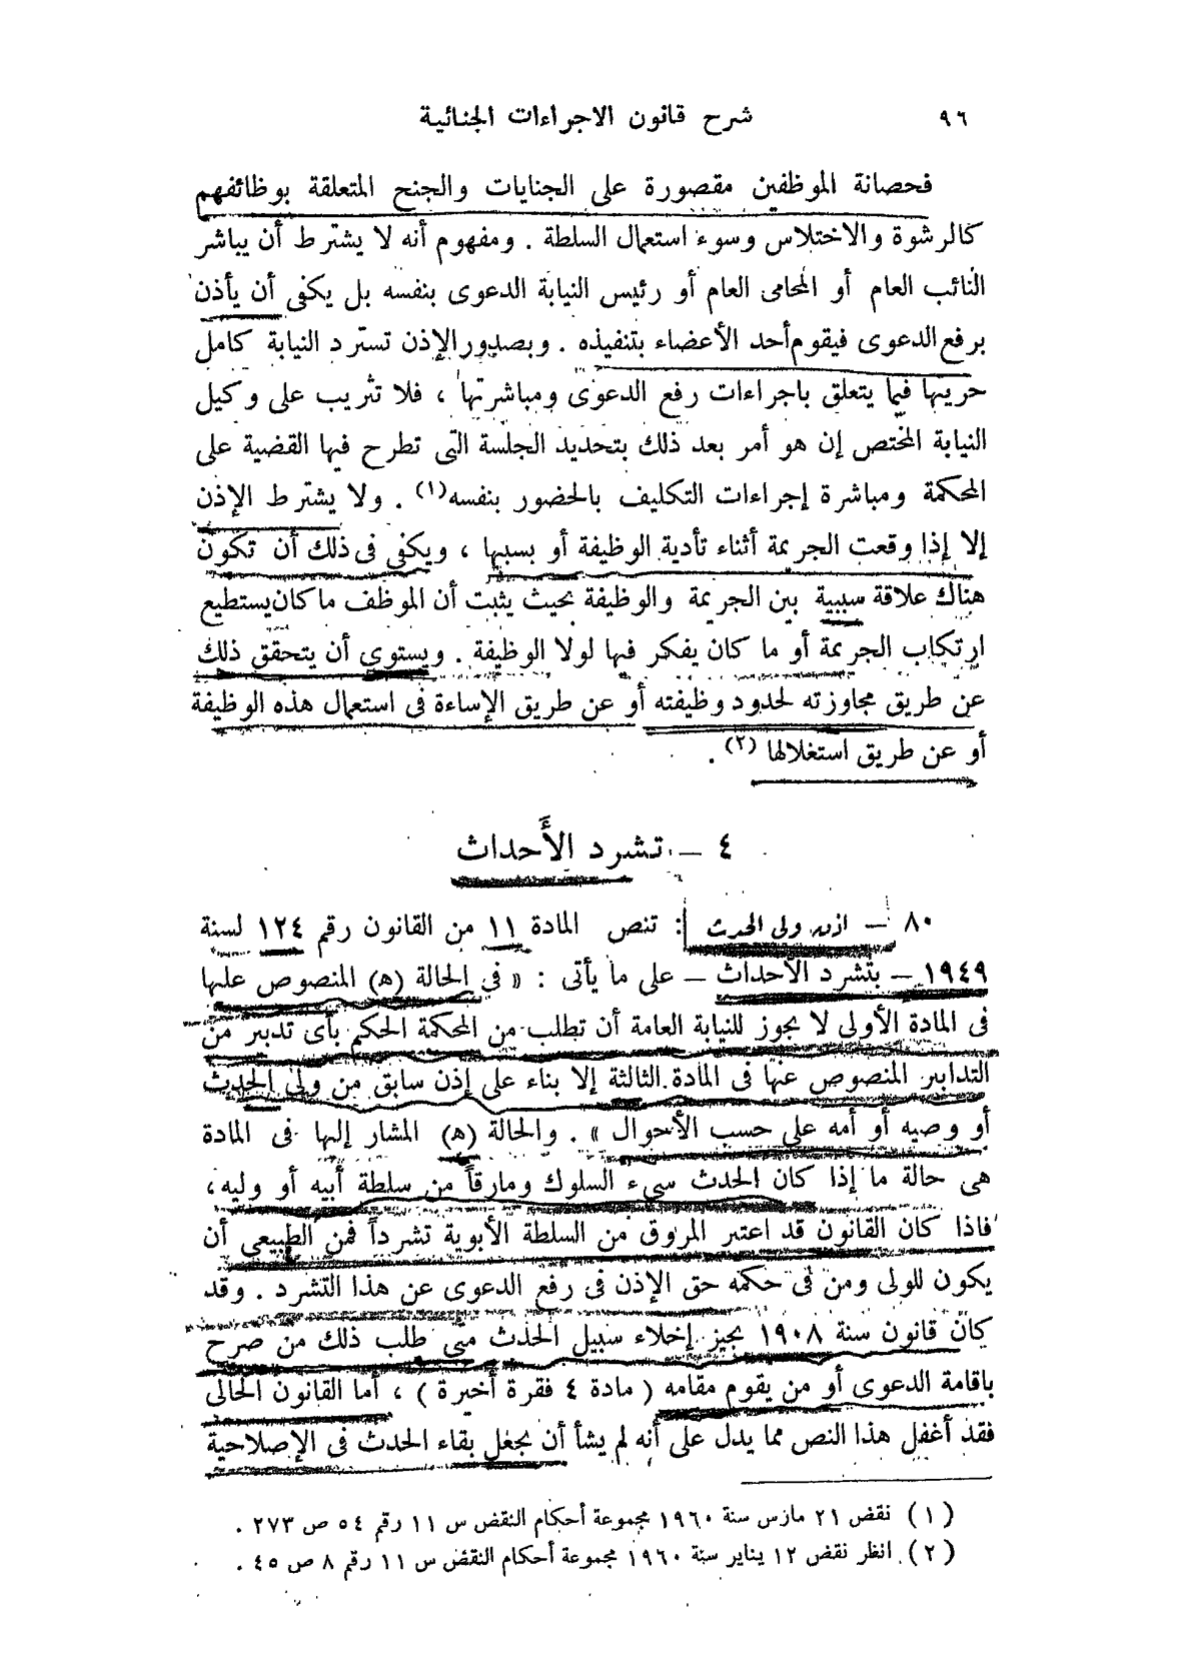 ٩٦
شرح قانون الاجراءات الجنائية
فحصانة الموظفين مقصورة على الجنايات والجنح المتعلقة بوظائفهم
كالرشوة والاختلاس وسوء استعمال السلطة . ومفهوم أنه لا يشترط أن يباشر
النائب العام أو المحامى العام أو رئيس النيابة الدعوى بنفسه بل يكفى أن يأذن
برفع الدعوى فيقوم أحد الأعضاء بتنفيذه . وبصدور الإذن تسترد النيابة كامل
حريتها فيما يتعلق باجراءات رفع الدعوى ومباشرتها ، فلا تثريب على وكيل
النيابة المختص إن هو أمر بعد ذلك بتحديد الجلسة التى تطرح فيها القضية على
المحكمة ومباشرة إجراءات التكليف بالحضور بنفسه (١) . ولا يشترط الإذن
إلا إذا وقعت الجريمة أثناء تأدية الوظيفة أو بسببها ، ويكفى فى ذلك أن تكون
هناك علاقة سببية بين الجريمة والوظيفة بحيث يثبت أن الموظف ما كان يستطيع
ارتكاب الجريمة أو ما كان يفكر فيها لولا الوظيفة . ويستوى أن يتحقق ذلك
عن طريق مجاوزته لحدود وظيفته أو عن طريق الإساءة فى استعمال هذه الوظيفة
أو عن طريق استغلالها (٢) .
٤ — تشرد الأَحداث
٨٠ — اذن ولى الحدث : تنص المادة ١١ من القانون رقم ١٢٤ لسنة
١٩٤٩ — بتشرد الأحداث — على ما يأتى : « فى الحالة (ه) المنصوص عليها
فى المادة الأولى لا يجوز للنيابة العامة أن تطلب من المحكمة الحكم بأى تدبير من
التدابير المنصوص عنها فى المادة الثالثة إلا بناء على إذن سابق من ولى الحدث
أو وصيه أو أمه على حسب الأحوال » . والحالة (ه) المشار إليها فى المادة
هى حالة ما إذا كان الحدث سىء السلوك ومارقاً من سلطة أبيه أو وليه ،
فاذا كان القانون قد اعتبر المروق من السلطة الأبوية تشرداً فمن الطبيعى أن
يكون للولى ومن فى حكمه حق الإذن فى رفع الدعوى عن هذا التشرد . وقد
كان قانون سنة ١٩٠٨ يجيز إخلاء سبيل الحدث متى طلب ذلك من صرح
باقامة الدعوى أو من يقوم مقامه ( مادة ٤ فقرة أخيرة ) ، أما القانون الحالى
فقد أغفل هذا النص مما يدل على أنه لم يشأ أن يجعل بقاء الحدث فى الإصلاحية
(١) نقض ٢١ مارس سنة ١٩٦٠ مجموعة أحكام النقض س ١١ رقم ٥٤ ص ٢٧٣ .
(٢) انظر نقض ١٢ يناير سنة ١٩٦٠ مجموعة أحكام النقض س ١١ رقم ٨ ص ٤٥ .